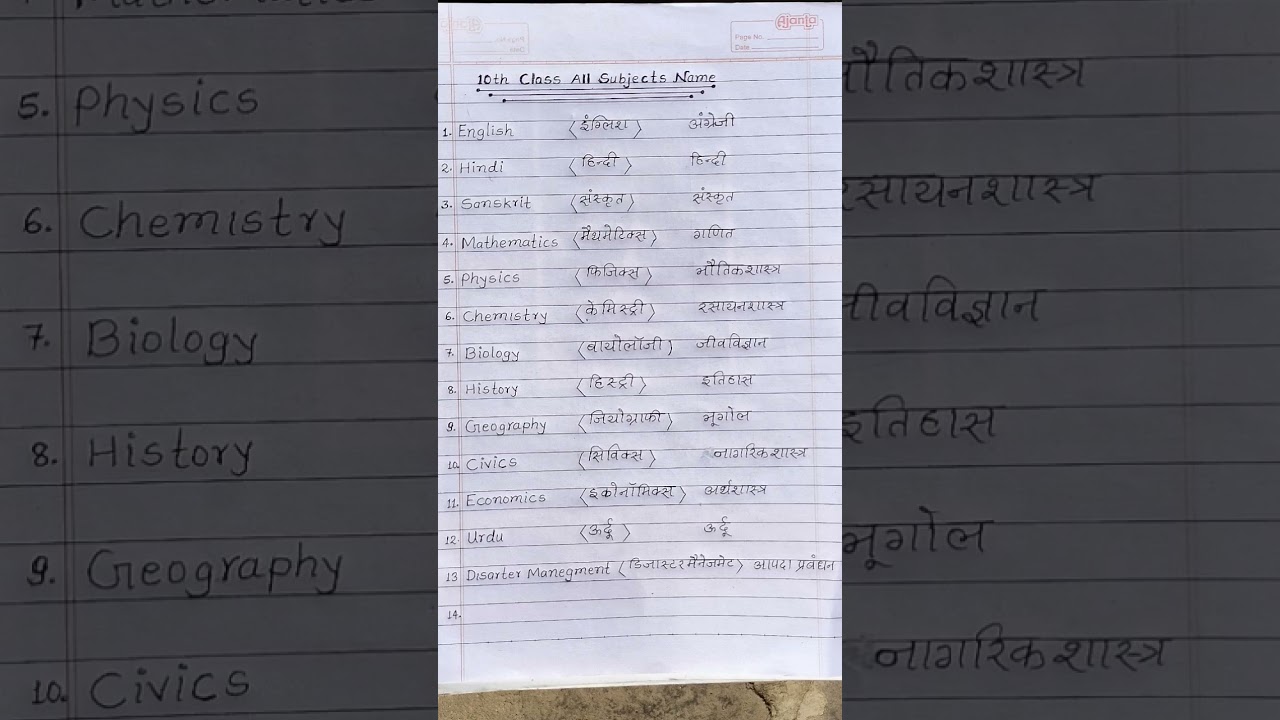 Ajanta
Page No.
Date
10th Class All Subjects Name
1. English <इंग्लिश> अंग्रेजी
2. Hindi <हिन्दी> हिन्दी
3. Sanskrit <संस्कृत> संस्कृत
4. Mathematics <मैथमेटिक्स> गणित
5. Physics <फिजिक्स> भौतिकशास्त्र
6. Chemistry <केमिस्ट्री> रसायनशास्त्र
7. Biology <बायोलॉजी> जीवविज्ञान
8. History <हिस्ट्री> इतिहास
9. Geography <जियोग्राफी> भूगोल
10. Civics <सिविक्स> नागरिकशास्त्र
11. Economics <इकोनॉमिक्स> अर्थशास्त्र
12. Urdu <ऊर्दू> ऊर्दू
13 Disarter Manegment <डिजास्टर मैनेजमेंट> आपदा प्रबंधन
14.
5. Physics भौतिकशास्त्र
6. Chemistry रसायनशास्त्र
7. Biology जीवविज्ञान
8. History इतिहास
9. Geography भूगोल
10. Civics नागरिकशास्त्र